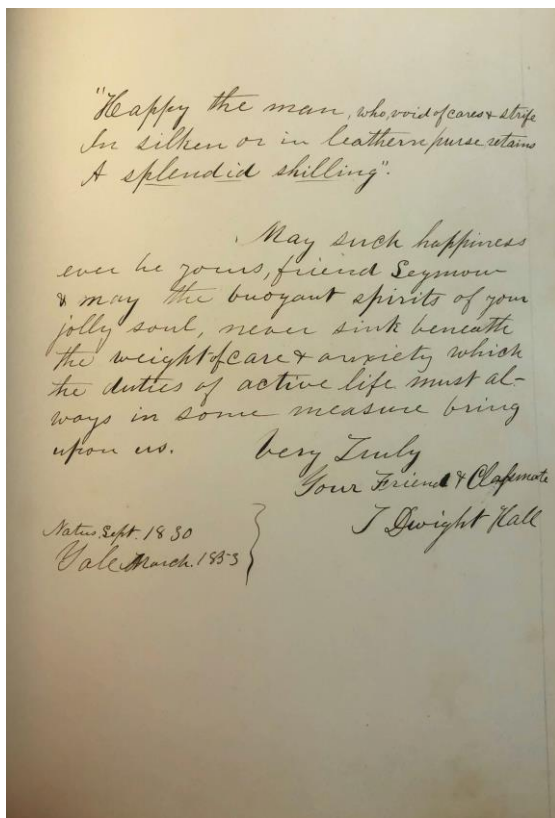 "Happy the man, who, void of cares & strife
In silken or in leathern purse retains
A splendid shilling".
May such happiness
ever be yours, friend Seymour
& may the buoyant spirits of your
jolly soul, never sink beneath
the weight of care & anxiety which
the duties of active life must al-
ways in some measure bring
upon us. Very Truly
Your Friend & Classmate
T Dwight Hall
Natus. Sept. 1830
Yale March. 1853